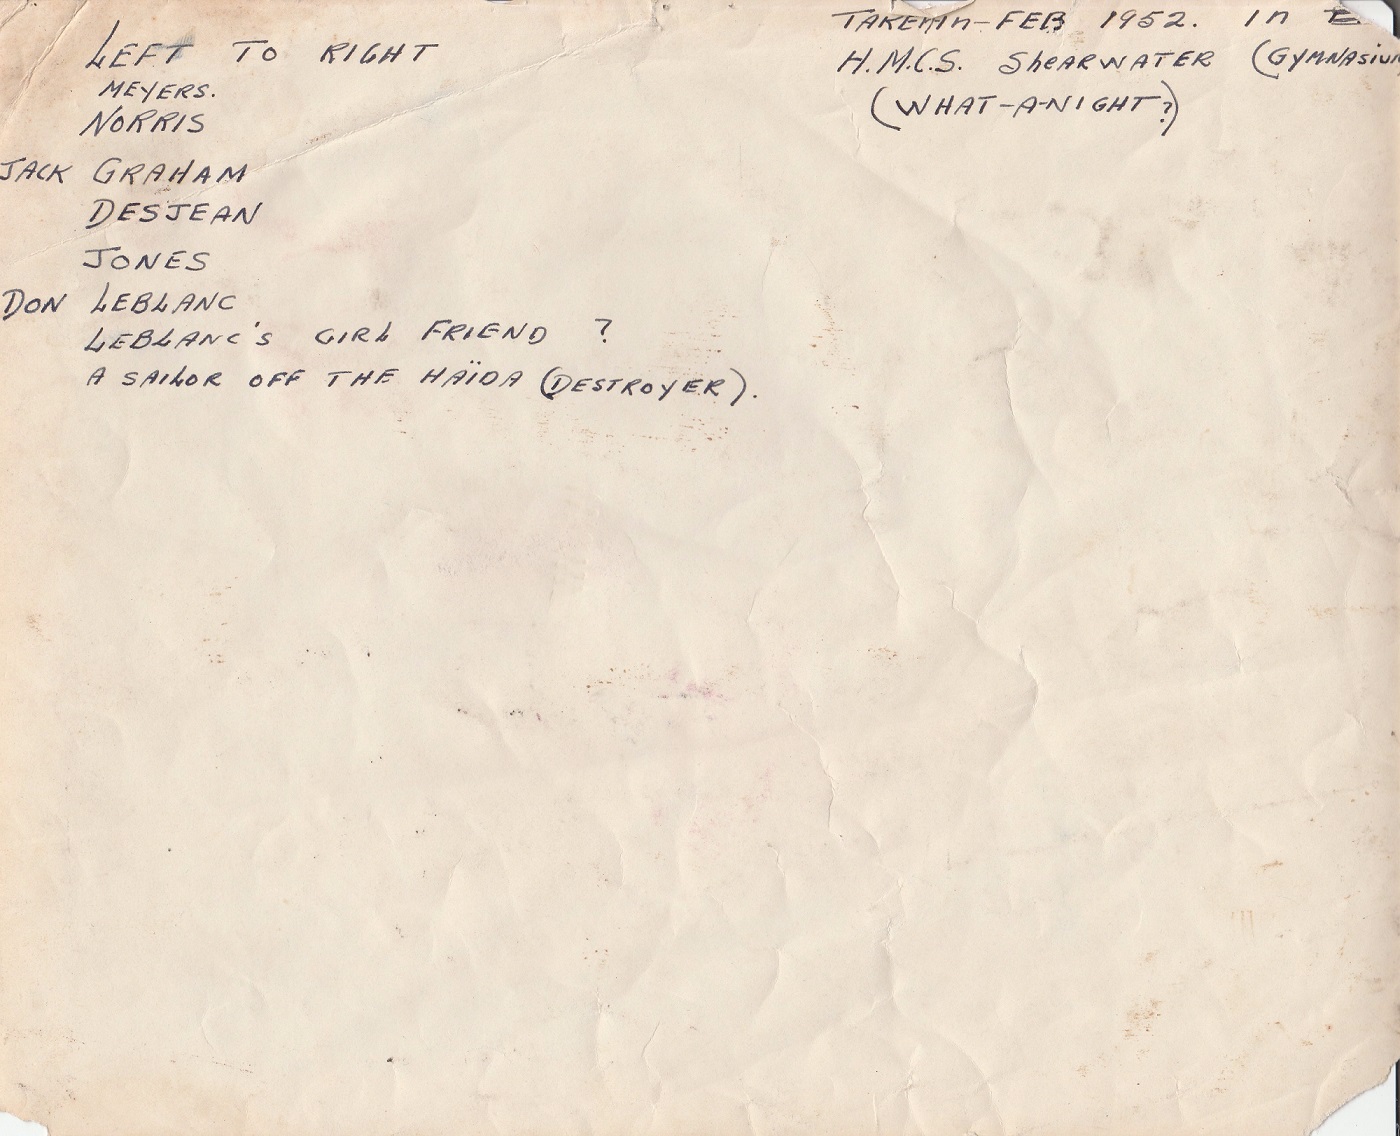 LEFT TO RIGHT
MEYERS.
NORRIS
JACK GRAHAM
DESJEAN
JONES
DON LEBLANC
LEBLANC'S GIRL FRIEND ?
A SAILOR OFF THE HAÏDA (DESTROYER).
TAKEN IN - FEB 1952. In
H.M.C.S. ShEARWATER (GYMNASIUM
(WHAT-A-NIGHT?)